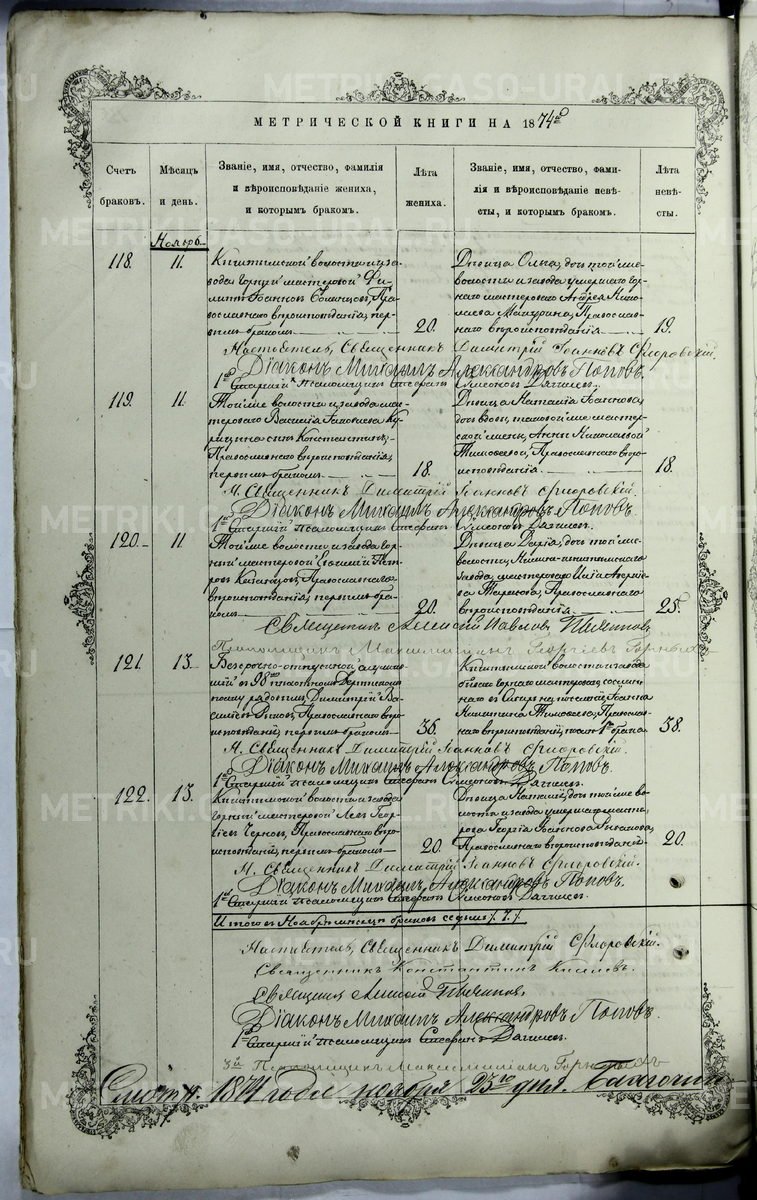 МЕТРИЧЕСКОЙ КНИГИ НА 1874й
Счетъ браковъ.
Мѣсяцъ и день.
Званіе, имя, отчество, фамилія
и вѣроисповѣданіе жениха,
и которымъ бракомъ.
Лѣта жениха.
Званіе, имя, отчество, фами-
лія и вѣроисповѣданіе невѣ-
сты, и которымъ бракомъ.
Лѣта невѣ-
сты.
Ноябрь
118. 11.
Кыштымской волости и за-
вода горный мастеровой Фи-
липпъ Іоанновъ Пра-
вославнаго вѣроисповѣданія, пер-
вымъ бракомъ
20.
Дѣвица Ольга, дочь той же
волости и завода умершаго гор-
наго мастероваго Андрея Нико-
лаева Православ-
наго вѣроисповѣданія
19.
Настоятель, Священникъ Димитрій Іоанновъ Флоровскій.
Діаконъ Михаилъ Александровъ Поповъ.
1й Старшій Псаломщикъ Стефанъ Симеоновъ
119. 11.
Той же волости и завода мас-
тероваго Василія Яковлева
сынъ Константинъ,
Православнаго вѣроисповѣданія,
первымъ бракомъ
18.
Дѣвица Наталія Іоаннова,
дочь вдовы, таковой же мастер-
ской жены, Анны Николаевой
Тимофеевой, Православнаго вѣро-
исповѣданія.
18.
Н. Священникъ Димитрій Іоанновъ Флоровскій.
Діаконъ Михаилъ Александровъ Поповъ.
1й Старшій Псаломщикъ Стефанъ Симеоновъ
120. 11
Той же волости и завода гор-
ный мастеровой Евгеній Пет-
ровъ Православнаго
вѣроисповѣданія, первымъ бра-
комъ
20.
Дѣвица Дарія, дочь той же
волости, Нижне-Кыштымскаго
завода, мастероваго Иліи Андрее-
ва Тарасова, Православнаго
вѣроисповѣданія
25.
Священникъ Алексій Павловъ
Псаломщикъ Максимиліанъ Георгіевъ
121. 13.
Безсрочно-отпускной служив-
шій въ 98м пѣхотномъ Дерптскомъ
полку рядовой, Димитрій Ва-
сильевъ Православнаго вѣро-
исповѣданія, первымъ бракомъ
36.
Кыштымской волости и завода
бывшаго горнаго мастероваго, сослан-
наго въ Сибирь на поселеніе, Іоанна
Никитина Тимофеева, Православ-
наго вѣроисповѣданія, послѣ 1го брака
38.
Н. Священникъ Димитрій Іоанновъ Флоровскій.
Діаконъ Михаилъ Александровъ Поповъ.
1й Старшій Псаломщикъ Стефанъ Симеоновъ
122. 13.
Кыштымской волости и завода
горный мастеровой Левъ Геор-
гіевъ Черновъ, Православнаго вѣро-
исповѣданія, первымъ бракомъ
20.
Дѣвица Наталія, дочь той же во-
лости и завода умершаго масте-
рова Георгія Іоаннова
Православнаго вѣроисповѣданія
20.
Н. Священникъ Димитрій Іоанновъ Флоровскій.
Діаконъ Михаилъ Александровъ Поповъ.
1й Старшій Псаломщикъ Стефанъ Симеоновъ
Итого въ Ноябрѣ мѣсяцѣ браковъ семь (7.)
Настоятель, Священникъ Димитрій Флоровскій.
Священникъ Константинъ
Священникъ Алексій
Діаконъ Михаилъ Александровъ Поповъ.
1й Старшій Псаломщикъ Стефанъ
3й Псаломщикъ Максимиліанъ
1874 года ноября 23го дня. Благочин